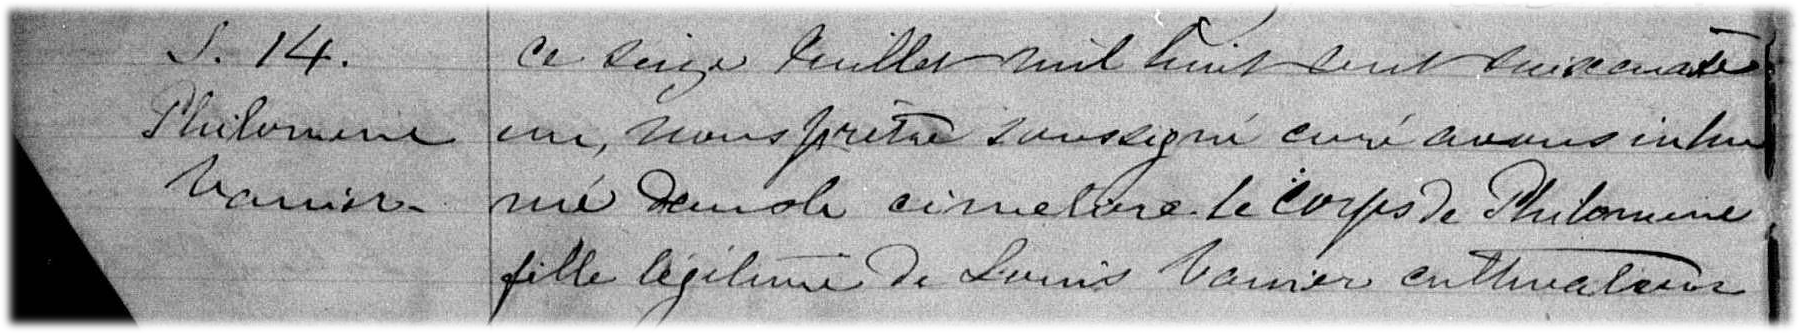 S. 14.
Philomene
Vanier.
ce seize Juillet mil huit cent soixante
un, nous prêtre soussigné curé avons inhu
mé dans le cimetiere le corps de Philomene
fille légitime de Louis Vanier cultivateur